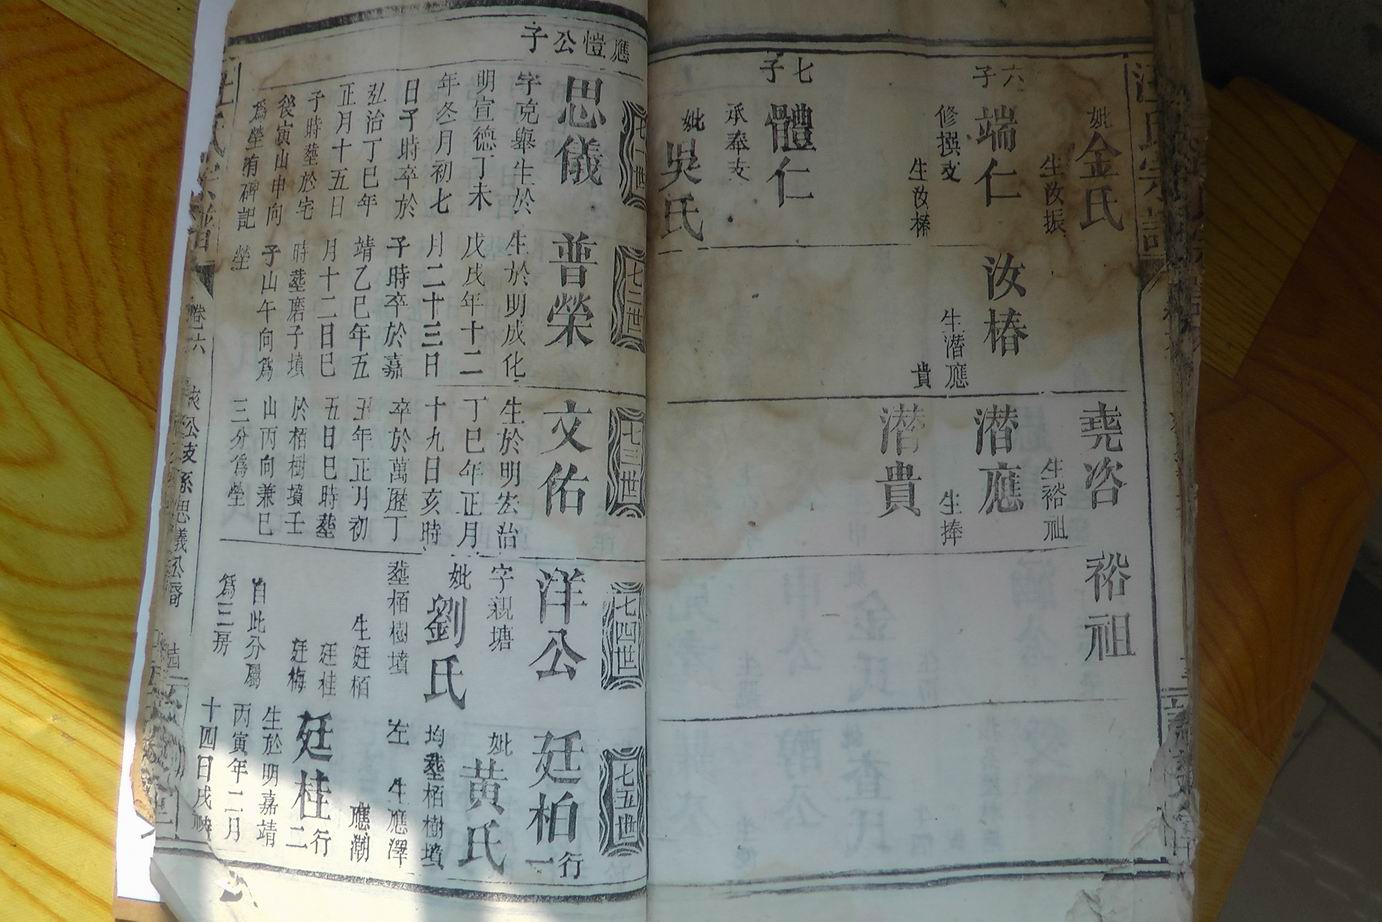 汪氏宗譜
妣金氏
生汝振
六子
端仁
修撰支
生汝椿
七子
體仁
承奉支
妣吳氏
汝椿
生潛應
貴
堯咨
生裕祖
潛應
生捧
潛貴
裕祖
應愷公子
七一世
思儀
字克舉生於
明宣德丁未
年冬月初七
日子時卒於
弘治丁巳年
正月十五日
子時塟於宅
後寅山申向
為塋有碑記
七二世
普榮
生於明成化
戊戌年十二
月二十三日
子時卒於嘉
靖乙巳年五
月十二日巳
時塟磨子墳
子山午向為
塋
七三世
文佑
生於明宏治
丁巳年正月
十九日亥時
卒於萬歷丁
丑年正月初
五日巳時塟
於栢樹墳壬
山丙向兼巳
三分為塋
七四世
洋公
字親塘
妣劉氏
塟栢樹墳
生廷栢
廷桂
廷梅
自此分屬
為三房
七五世
廷柏行一
妣黃氏
均塟栢樹墳
左
生應澤
應潮
廷桂行二
生於明嘉靖
丙寅年二月
十四日戌時
汪氏宗譜
卷六
公支系思儀公裔